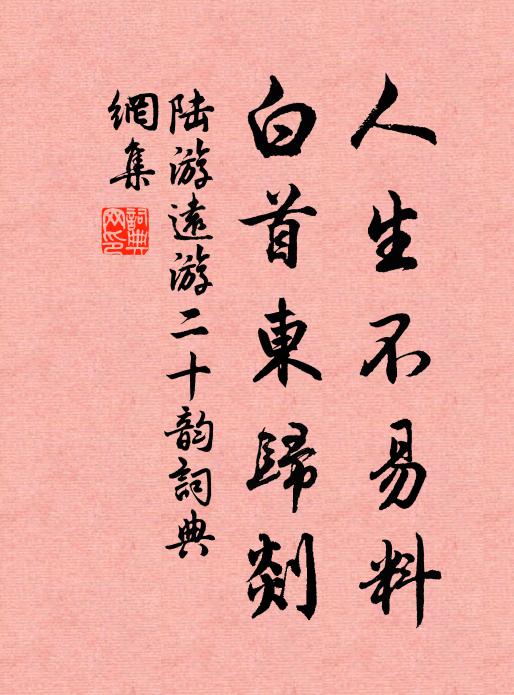 人生不易料
白首東歸剡
陆游遠游二十韵詞典
網集
詞典
网印